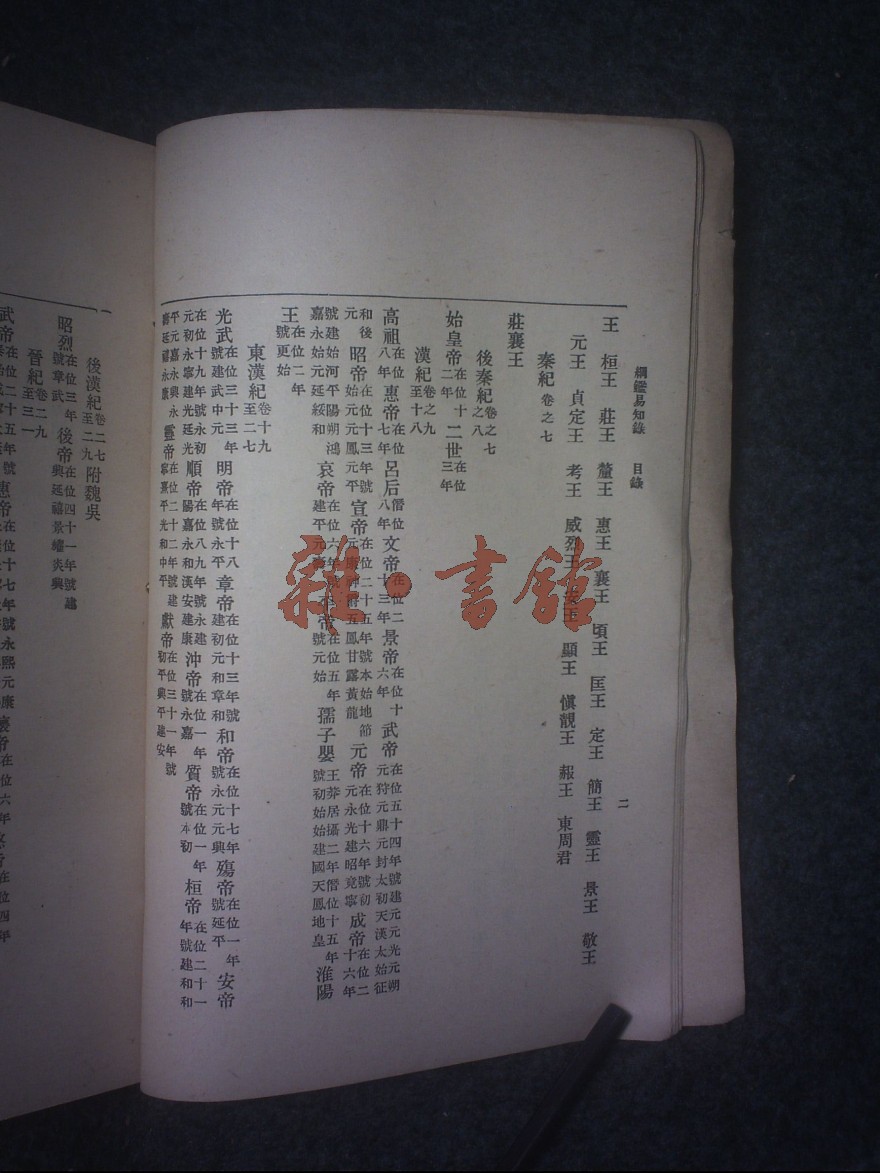 綱鑑易知錄 目錄 二
王 桓王 莊王 釐王 惠王 襄王 頃王 匡王 定王 簡王 靈王 景王 敬王
元王 貞定王 考王 威烈王 顯王 愼靚王 赧王 東周君
秦紀 卷之七
莊襄王
後秦紀 卷之七 卷之八
始皇帝 在位十二年 二世 在位三年
漢紀 卷之九 至十八
高祖 在位八年 惠帝 在位七年 呂后 僭位八年 文帝 在位二十三年 景帝 在位十六年 武帝 在位五十四年號建元元光元朔元狩元鼎元封太初天漢太始征
和後元 昭帝 在位十三年號始元元鳳元平 宣帝 在位二十五年號本始地節元康神爵五鳳甘露黃龍 元帝 在位十六年號初元永光建昭竟寧 成帝 在位二十六年
號建始河平陽朔鴻嘉永始元延綏和 哀帝 在位六年號建平元壽 帝 在位五年號元始 孺子嬰 王莽居攝二年僭位十五年號初始始建國天鳳地皇 淮陽
王 在位二年號更始
東漢紀 卷十九 至二七
光武 在位三十三年號建武中元 明帝 在位十八年號永平 章帝 在位十三年號建初元和章和 和帝 在位十七年號永元元興 殤帝 在位一年號延平 安帝
在位十九年號永初元初永寧建光延光 順帝 在位八九年號永建陽嘉永和漢安建康 沖帝 在位一年號永嘉 質帝 在位一年號本初 桓帝 在位二十一年號建和和
平元嘉永興永壽延禧永康 靈帝 在位二十二年號建寧熹平光和中平 獻帝 在位三十一年號初平興平建安
後漢紀 卷二七 至二九 附魏吳
昭烈 在位三年號章武 後帝 在位四十一年號建興延禧景耀炎興
晉紀 卷二九 至三一
武帝 在位二十五年號 惠帝 在位十七年號永熙元康 懷帝 在位六年 在位四年
雜·書館